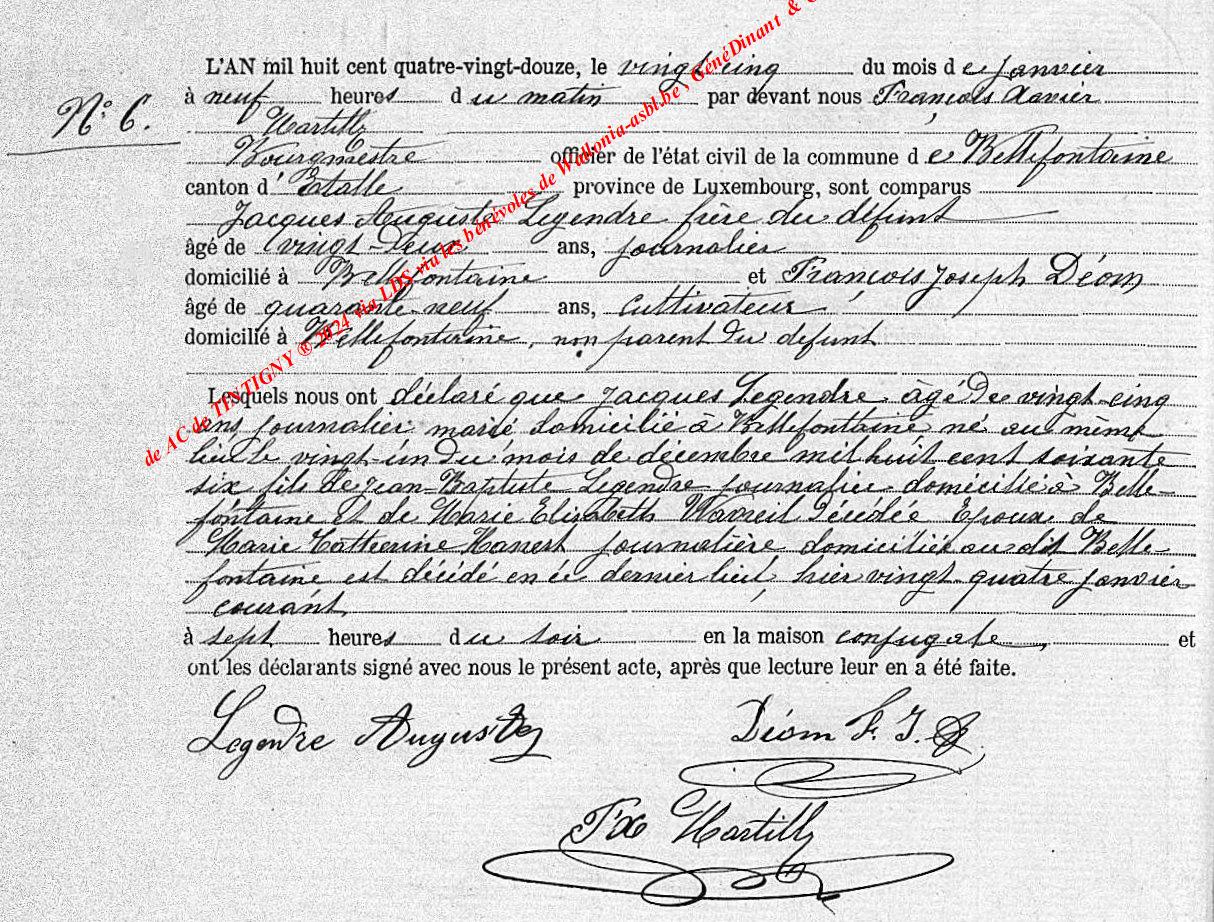 de AC de TINTIGNY ® 2024 via LDS via les bénévoles de Wallonia-asbl.be, GénéDinant &
L'AN mil huit cent quatre-vingt-douze, le vingt cinq du mois de janvier
N° 6.
à neuf heures du matin par devant nous François Xavier
Martilly
Bourgmestre officier de l'état civil de la commune de Bellefontaine
canton d'Etalle province de Luxembourg, sont comparus
Jacques Auguste Legendre frère du défunt
âgé de vingt-deux ans, journalier
domicilié à Bellefontaine et François Joseph Déom
âgé de quarante-neuf ans, cultivateur
domicilié à Bellefontaine, non parent du defunt
Lesquels nous ont déclaré que Jacques Legendre âgé de vingt-cinq
ans journalier, marié domicilié à Bellefontaine né au même
lieu le vingt-un du mois de décembre mil huit cent soixante
six fils de Jean-Baptiste Legendre journalier domicilié à Belle-
fontaine et de Marie Elizabeth décédée Epoux de
Marie Catherine journalière domiciliée au dit Belle-
fontaine est décédé en ce dernier lieu, hier vingt-quatre janvier
courant,
à sept heures du soir en la maison conjugale, et
ont les déclarants signé avec nous le présent acte, après que lecture leur en a été faite.
Legendre Auguste Déom F. J.
F X Martilly